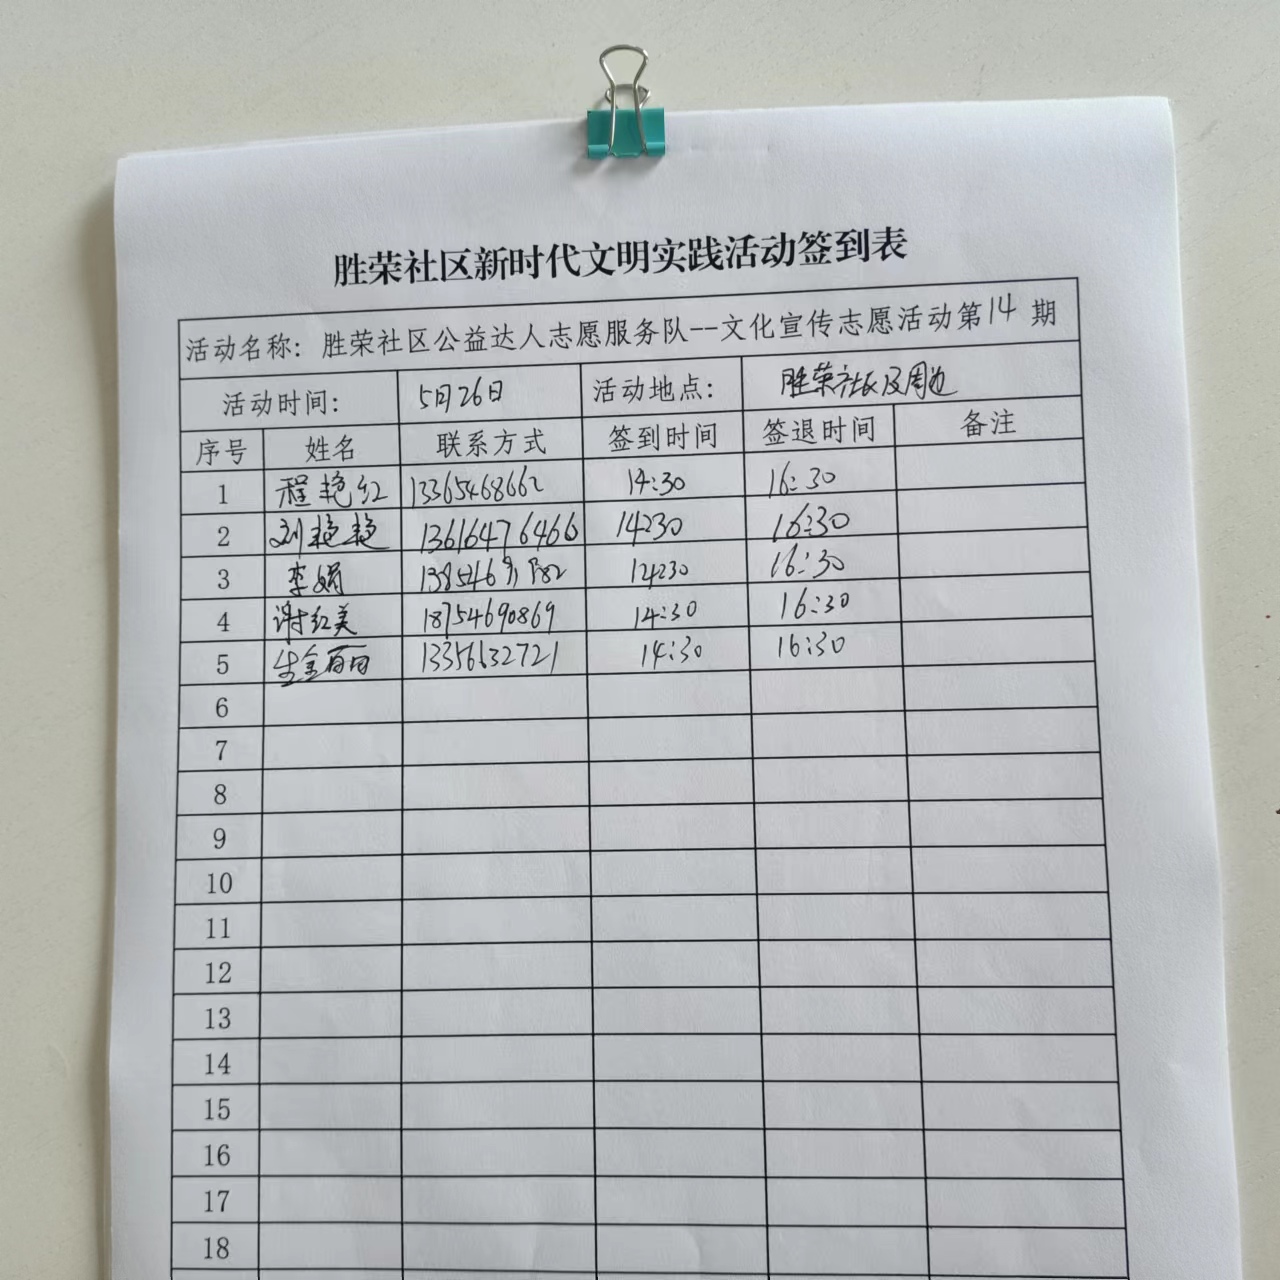 胜荣社区新时代文明实践活动签到表
活动名称: 胜荣社区公益达人志愿服务队--文化宣传志愿活动第14期
活动时间: 5月26日 活动地点: 胜荣社区及周边
序号 姓名 联系方式 签到时间 签退时间 备注
1 程艳红 13365468662 14:30 16:30
2 刘艳艳 13616476466 14:30 16:30
3 李娟 14:30 16:30
4 谢红美 18754690869 14:30 16:30
5 13356632721 14:30 16:30
6
7
8
9
10
11
12
13
14
15
16
17
18